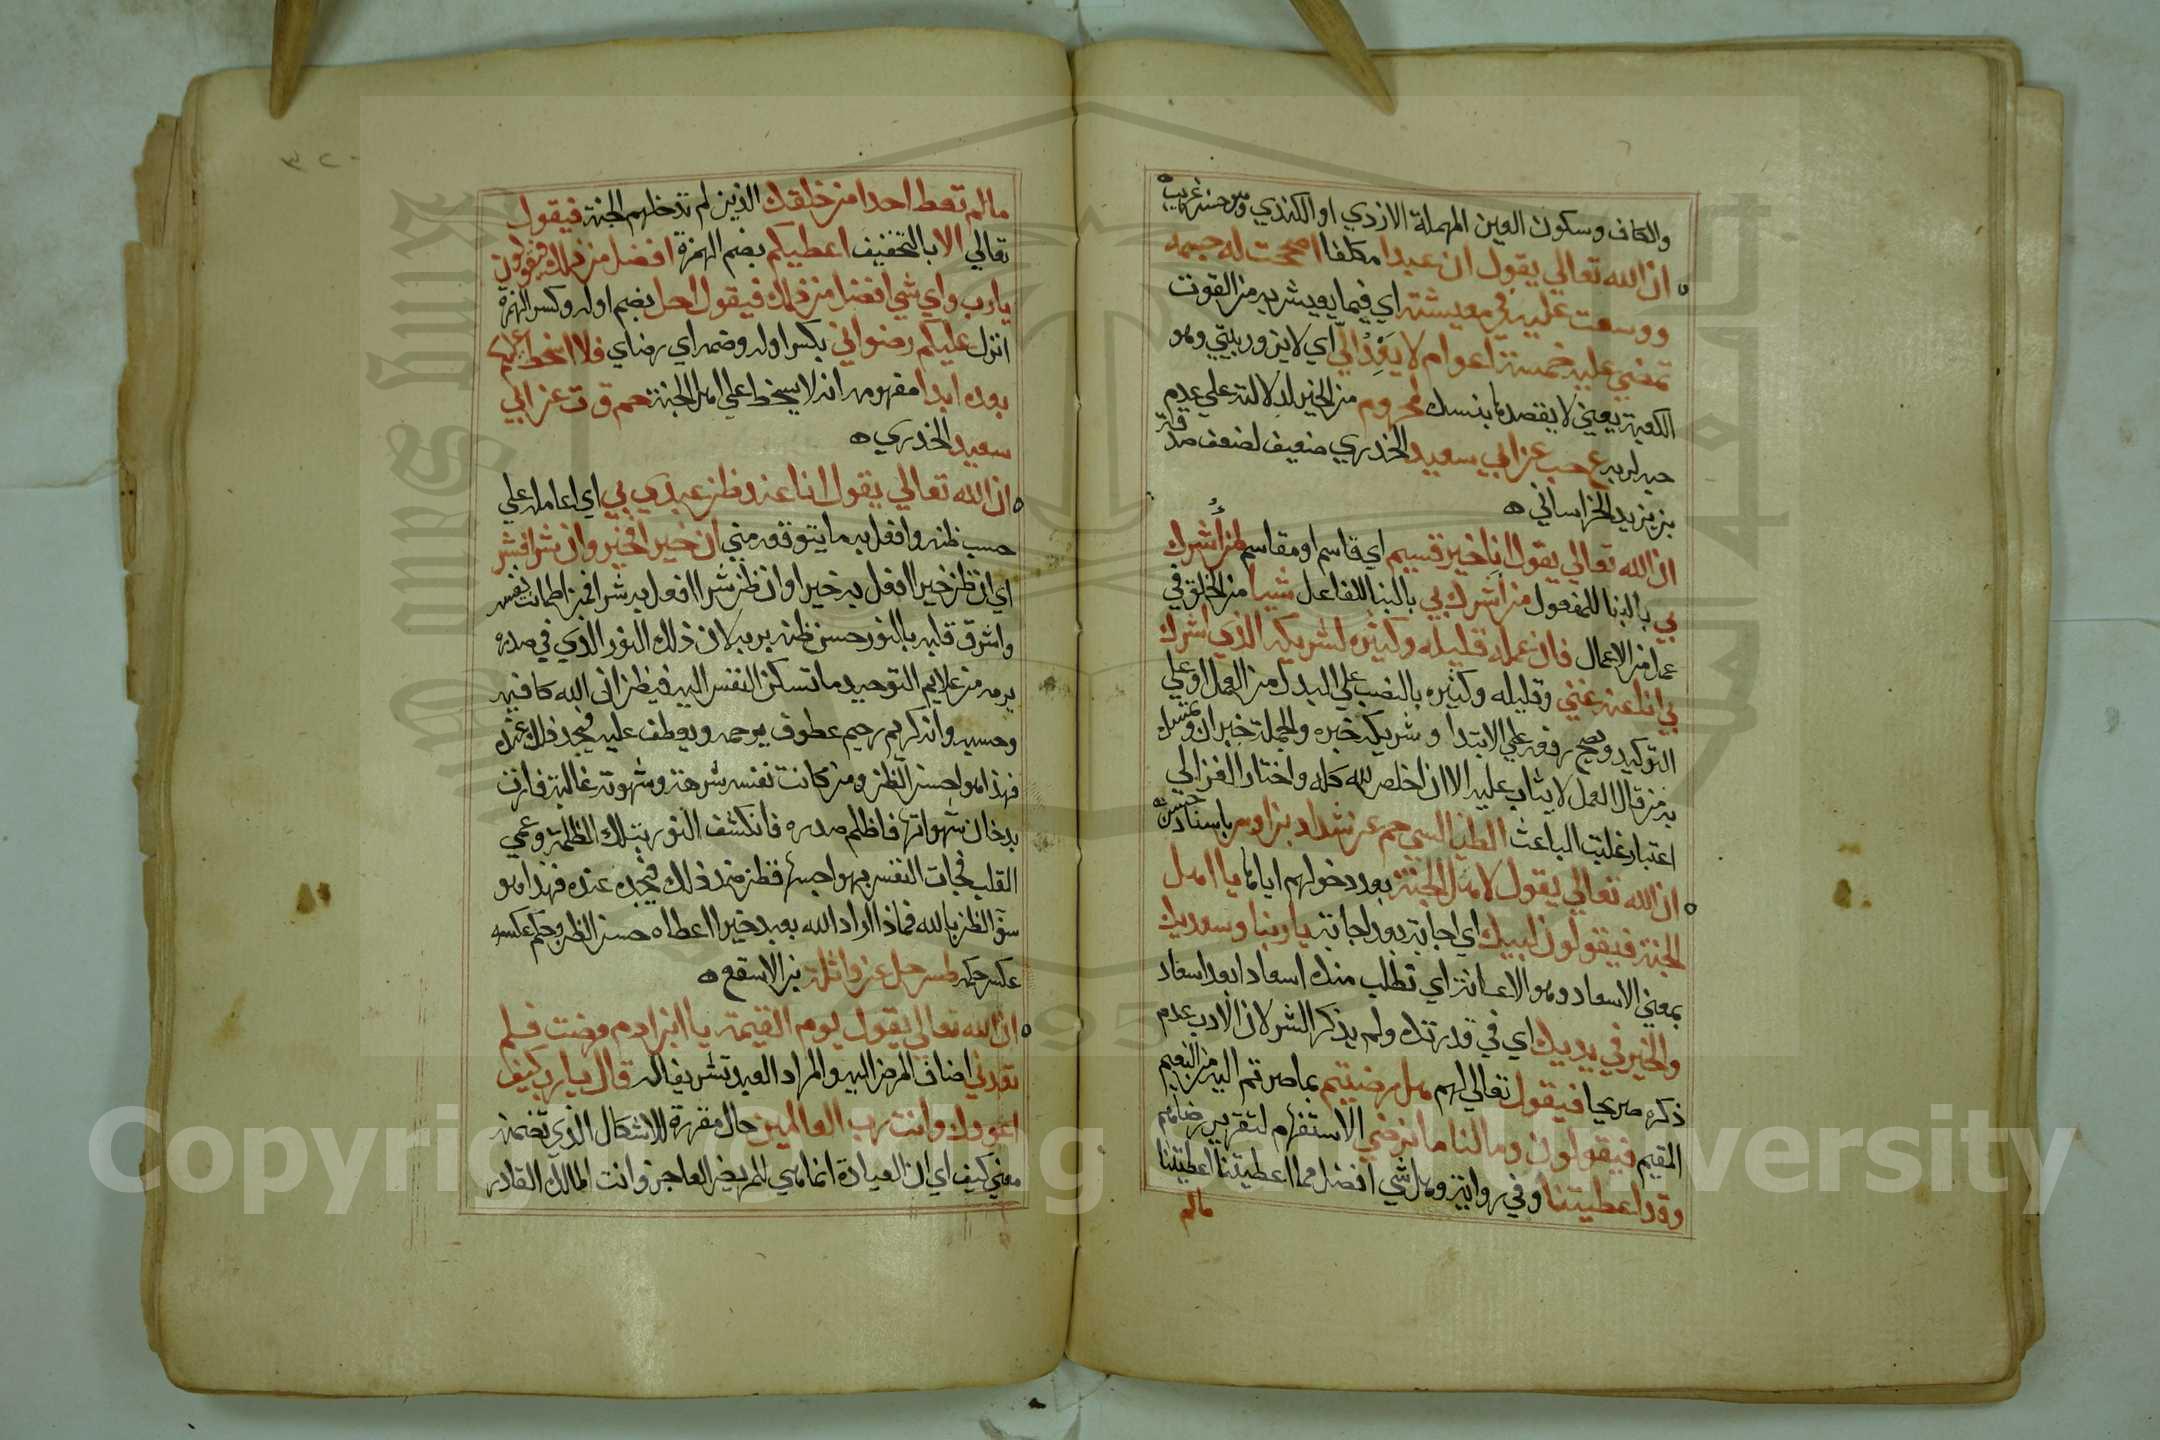 والكاف وسكون العين المهملة الازدي او الكندي وهو حسن غريب
ان الله تعالي يقول ان عبدا مكلفا اصححت له جسمه
ووسعت عليه في معيشته اي فيما يعيش به من القوت
تمضي عليه خمسة اعوام لا يَفِدُ اليّ اي لا يزور بيتي وهو
الكعبة يعني لا يقصدها بنسك لمحروم من الخير لدلالته علي عدم
حبه لربه ع حب عن ابي سعيد الخدري ضعيف لضعف صدقة
بن يزيد الخراساني ه
ان الله تعالي يقول انا خير قسيم اي قاسم او مقاسم لمن أُشرك
بي بالبنا للمفعول من اشرك بي بالبنا للفاعل شيا من الخلق في
عمل من الاعمال فان عمله قليله وكثيره لشريكه الذي اشرك
بي انا عنه غني وقليله وكثيره بالنصب علي البدل من العمل او علي
التوكيد ويصح رفعه علي الابتدا وشريكه خبره والجملة خبر ان وتمسك
به من قال العمل لا يثاب عليه الا ان اخلص لله كله واختار الغزالي
اعتبار غلبة الباعث الطيالسي حم عن شداد بن اوس باسناد حسن ه
ان الله تعالي يقول لاهل الجنة بعد دخولهم اياها يا اهل
الجنة فيقولون لبيك اي اجابة بعد اجابة يا ربنا وسعديك
بمعني الاسعاد وهو الاعانة اي نطلب منك اسعادا بعد اسعاد
والخير في يديك اي في قدرتك ولم يذكر الشر لان الادب عدم
ذكره صريحا فيقول تعالي لهم هل رضيتم بما صرتم اليه من النعيم
المقيم فيقولون وما لنا ما نرضي الاستفهام لتقرير رضاهم
وقد اعطيتنا وفي رواية وهل شي افضل مما اعطيتنا اعطيتنا
مالم
مالم تعط احدا من خلقك الذين لم تدخلهم الجنة فيقول
تعالي الا بالتخفيف اعطيكم بضم الهمزة افضل من ذلك فيقولون
يا رب واي شي افضل من ذلك فيقول احل بضم اوله وكسر الهمزة
انزل عليكم رضواني بكسر اوله وضمه اي رضاي فلا اسخط عليكم
بعده ابدا مفهومه انه لا يسخط علي اهل الجنة حم ق ت عن ابي
سعيد الخدري ه
ان الله تعالي يقول انا عند ظن عبدي بي اي اعامله علي
حسب ظنه وافعل به ما يتوقعه مني ان خيرا فخير وان شرا فشر
اي ان ظن خيرا افعل به خيرا وان ظن شرا افعل به شرا فمن اطمانت نفسه
واشرق قلبه بالنور حسن ظنه بربه لان ذلك النور الذي في صدره
يريه من علايم التوحيد ما تسكن النفس اليه فيظن ان الله كافيه
وحسبه وانه كريم رحيم عطوف يرحمه ويعطف عليه فيجد ذلك عنده
فهذا هو احسن الظن ومن كانت نفسه شرهة وشهوته غالبة فارت
بدخان شهواتها فاظلم صدره فانكشف النور بتلك الظلمة وعمي
القلب فجات النفس بهواجسها فظن ضد ذلك فيجده عنده فهذا هو
سوّ الظن بالله فاذا اراد الله بعبد خيرا اعطاه حسن الظن وحكم عكسه
عكس حكمه طس حل عن واثلة بن الاسقع ه
ان الله تعالي يقول يوم القيمة يا ابن ادم مرضت فلم
تعدني اضاف المرض اليه والمراد العبد تشريفا له قال يا رب كيف
اعودك وانت رب العالمين حال مقررة للاشكال الذي تضمنه
معني كيف اي ان العيادة انما هي للمريض العاجز وانت المالك القادر
Copyright © King Saud University
King Saud University
1957